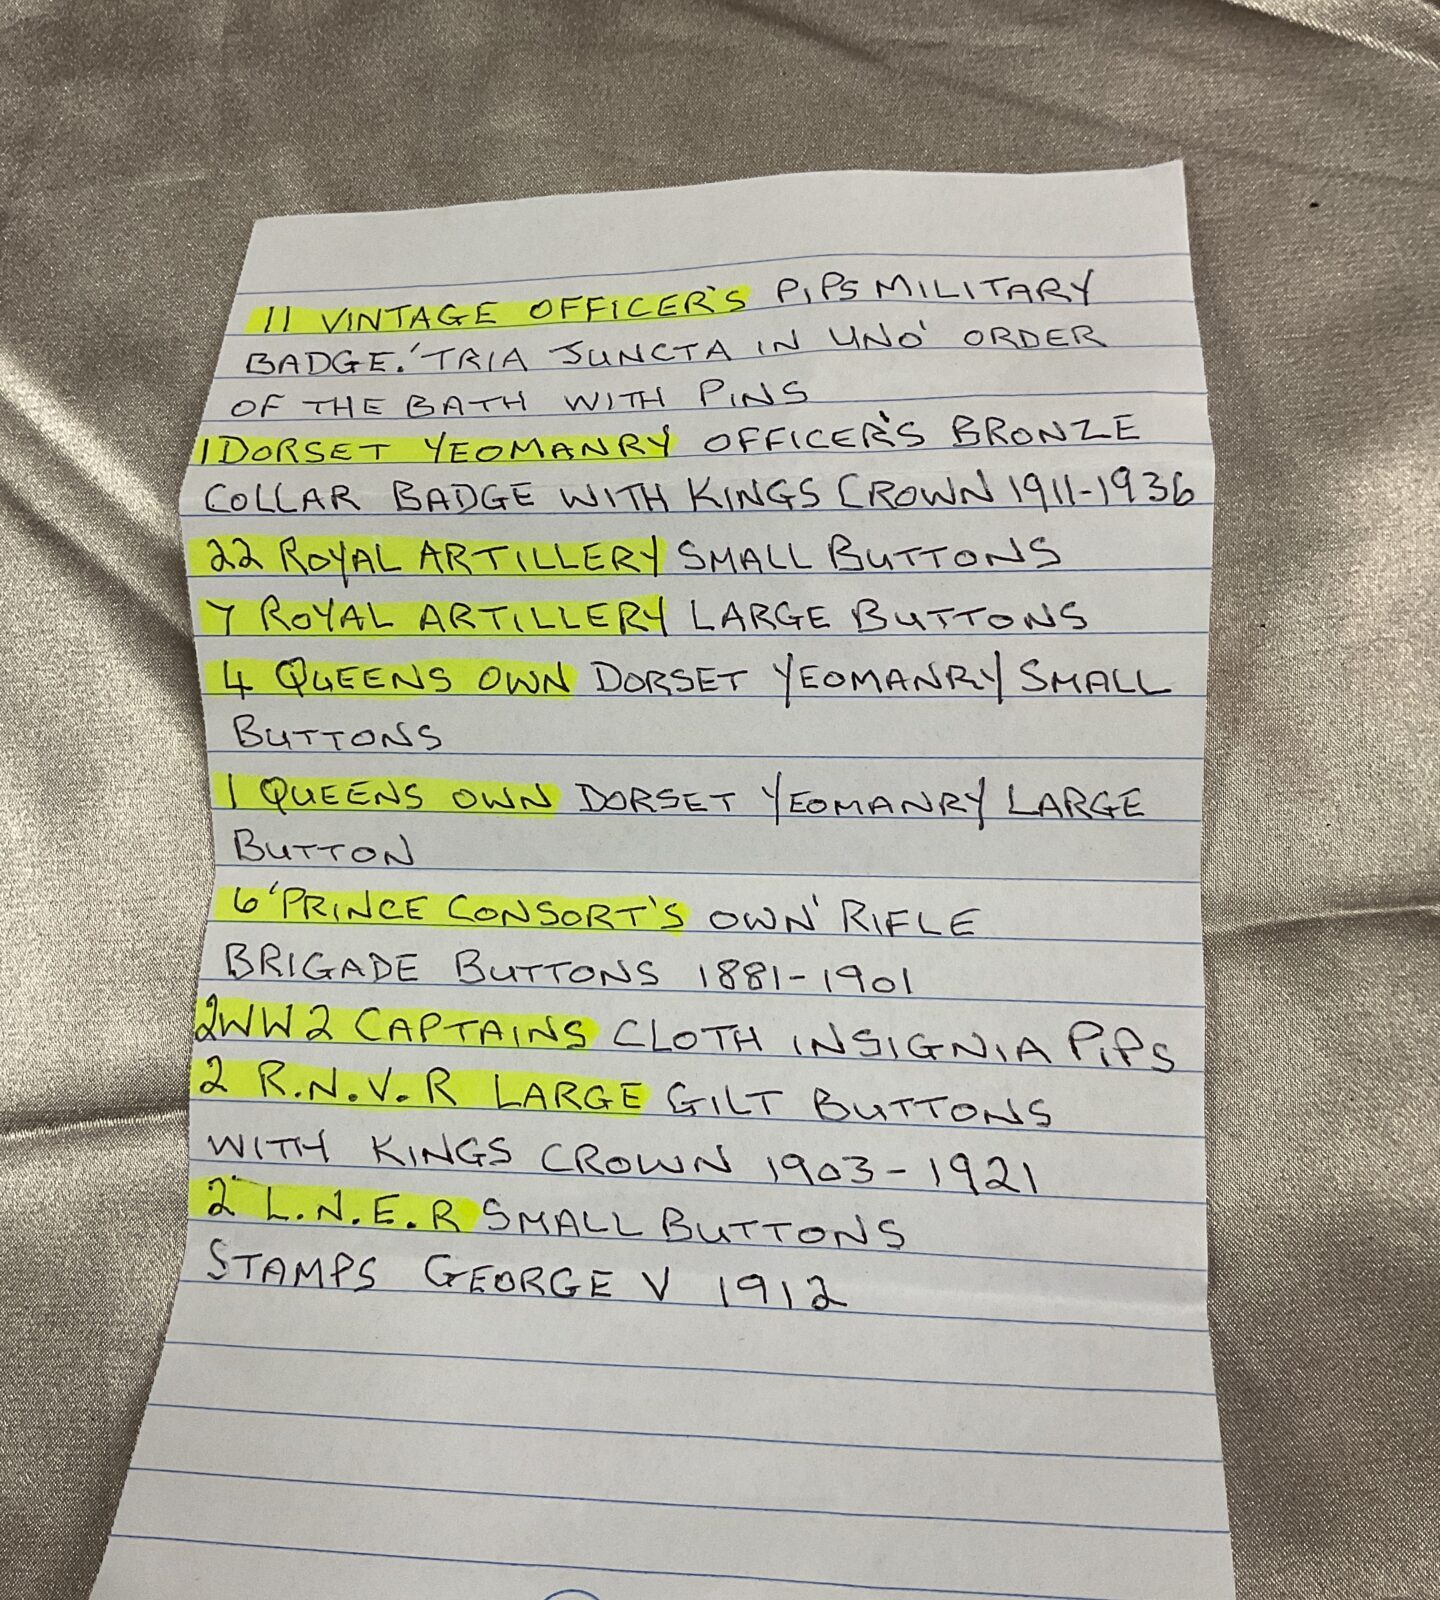 11 VINTAGE OFFICER'S PIPS MILITARY
BADGE. 'TRIA JUNCTA IN UNO' ORDER
OF THE BATH WITH PINS
1 DORSET YEOMANRY OFFICER'S BRONZE
COLLAR BADGE WITH KINGS CROWN 1911-1936
22 ROYAL ARTILLERY SMALL BUTTONS
7 ROYAL ARTILLERY LARGE BUTTONS
4 QUEENS OWN DORSET YEOMANRY SMALL
BUTTONS
1 QUEENS OWN DORSET YEOMANRY LARGE
BUTTON
6 'PRINCE CONSORT'S OWN' RIFLE
BRIGADE BUTTONS 1881-1901
2 WW2 CAPTAINS CLOTH INSIGNIA PIPS
2 R.N.V.R LARGE GILT BUTTONS
WITH KINGS CROWN 1903-1921
2 L.N.E.R SMALL BUTTONS
STAMPS GEORGE V 1912